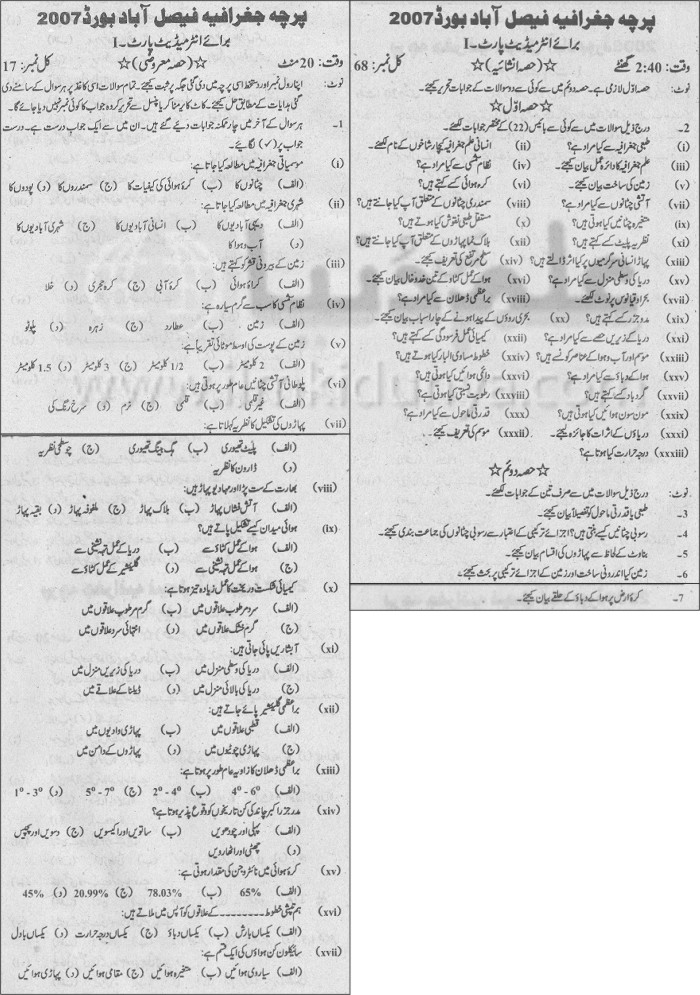 پرچہ جغرافیہ فیصل آباد بورڈ 2007
برائے انٹرمیڈیٹ پارٹ۔I
وقت: 20 منٹ ☆(حصہ معروضی)☆ کل نمبر: 17
نوٹ: اپنا رول نمبر اور دستخط اسی پرچہ میں دی گئی جگہ پر ثبت کیجئے۔ تمام سوالات اسی کاغذ پر ہر سوال کے سامنے دی
گئی ہدایات کے مطابق حل کیجئے۔ کاٹ کر یا مٹا کر یا پنسل سے تحریر کردہ جواب کا کوئی نمبر نہیں دیا جائے گا۔
1- ہر سوال کے آخر میں چار ممکنہ جوابات دیئے گئے ہیں۔ ان میں سے ایک جواب درست ہے۔ درست
جواب پر (✓) لگائیے۔
(i) موسمیاتی جغرافیہ میں مطالعہ کیا جاتا ہے:
(الف) چٹانوں کا (ب) کرہ ہوائی کی کیفیات کا (ج) سمندروں کا (د) پودوں کا
(ii) شہری جغرافیہ میں مطالعہ کیا جاتا ہے:
(الف) دیہی آبادیوں کا (ب) انسانی آبادیوں کا (ج) شہری آبادیوں کا
(د) آب و ہوا کا
(iii) زمین کے بیرونی قشر کو کہتے ہیں:
(الف) کرہ ہوائی (ب) کرہ آبی (ج) کرہ حجری (د) خلا
(iv) نظام شمسی کا سب سے گرم سیارہ ہے:
(الف) زمین (ب) عطارد (ج) زہرہ (د) پلوٹو
(v) زمین کے پوست کی اوسط موٹائی تقریباً ہے:
(الف) 2 کلومیٹر (ب) 1/2 کلومیٹر (ج) 3 کلومیٹر (د) 1.5 کلومیٹر
(vi) پلوطانی آتشی چٹانیں عام طور پر ہوتی ہیں:
(الف) غیر قلمی (ب) قلمی (ج) نرم (د) سرخ رنگ کی
(vii) پہاڑوں کی تشکیل کا نظریہ کہلاتا ہے:
(الف) پلیٹ تھیوری (ب) بگ بینگ تھیوری (ج) چوسطحی نظریہ
(د) ڈارون کا نظریہ
(viii) بھارت کے ست پڑا اور مہادیو پہاڑ ہیں:
(الف) آتش فشاں پہاڑ (ب) بلاک پہاڑ (ج) ملفوفہ پہاڑ (د) بقیہ پہاڑ
(ix) ہوائی میدان کیسے تشکیل پاتے ہیں؟
(الف) ہوا کے عمل کٹاؤ سے (ب) دریا کے عمل تہہ نشینی سے
(ج) ہوا کے عمل تہہ نشینی سے (د) گلیشیئر کے عمل کٹاؤ سے
(x) کیمیائی شکست و ریخت کا عمل زیادہ تیز ہوتا ہے:
(الف) سرد مرطوب علاقوں میں (ب) گرم مرطوب علاقوں میں
(ج) گرم خشک علاقوں میں (د) انتہائی سرد علاقوں میں
(xi) آبشاریں پائی جاتی ہیں:
(الف) دریا کی وسطی منزل میں (ب) دریا کی زیریں منزل میں
(ج) دریا کی بالائی منزل میں (د) ڈیلٹا کے علاقے میں
(xii) براعظمی گلیشیئر پائے جاتے ہیں:
(الف) قطبی علاقوں میں (ب) پہاڑی وادیوں میں
(ج) پہاڑی چوٹیوں میں (د) پہاڑوں کے دامن میں
(xiii) براعظمی ڈھلان کا زاویہ عام طور پر ہوتا ہے:
(الف) 4° - 6° (ب) 2° - 4° (ج) 5° - 7° (د) 1° - 3°
(xiv) مدوجزر اکبر چاند کی کن تاریخوں کو وقوع پذیر ہوتا ہے؟
(الف) پہلی اور چودھویں (ب) ساتویں اور اکیسویں (ج) دسویں اور پچیس
(د) چھٹی اور اٹھارویں
(xv) کرہ ہوائی میں نائٹروجن کی مقدار ہوتی ہے:
(الف) 65% (ب) 78.03% (ج) 20.99% (د) 45%
(xvi) ہم تپشی خطوط ـــــــــ کے علاقوں کو آپس میں ملاتے ہیں:
(الف) یکساں بارش (ب) یکساں دباؤ (ج) یکساں درجہ حرارت (د) یکساں بادل
(xvii) سائیکلون کن ہواؤں کی ایک قسم ہے:
(الف) سیاروی ہوائیں (ب) متغیرہ ہوائیں (ج) مقامی ہوائیں (د) پہاڑی ہوائیں
پرچہ جغرافیہ فیصل آباد بورڈ 2007
برائے انٹرمیڈیٹ پارٹ۔I
وقت: 2:40 گھنٹے ☆(حصہ انشائیہ)☆ کل نمبر: 68
نوٹ: حصہ اوّل لازمی ہے۔ حصہ دوئم میں سے کوئی سے دو سوالات کے جوابات تحریر کیجئے۔
☆ حصہ اوّل ☆
2- درج ذیل سوالات میں سے کوئی سے بائیس (22) کے مختصر جوابات لکھئے۔
(i) طبعی جغرافیہ سے کیا مراد ہے؟ (ii) انسانی علم جغرافیہ کی چار شاخوں کے نام لکھئے۔
(iii) علم جغرافیہ کا دائرہ عمل بیان کیجئے۔ (iv) نظام شمسی سے کیا مراد ہے؟
(v) زمین کی ساخت بیان کیجئے۔ (vi) کرہ ہوائی کسے کہتے ہیں؟
(vii) آتشی چٹانوں سے کیا مراد ہے؟ (viii) سمندری چٹانوں کے متعلق آپ کیا جانتے ہیں؟
(ix) متغیرہ چٹانیں کیا ہوتی ہیں؟ (x) مستقل طبعی نقوش کیا ہوتے ہیں؟
(xi) نظریہ پلیٹ کسے کہتے ہیں؟ (xii) بلاک نما پہاڑوں کے متعلق آپ کیا جانتے ہیں؟
(xiii) پہاڑ انسانی سرگرمیوں پر کیا اثر ڈالتے ہیں؟ (xiv) سطح مرتفع کی تعریف کیجئے۔
(xv) دریا کی وسطی منزل سے کیا مراد ہے؟ (xvi) ہوا کے عمل کٹاؤ کے تین خدوخال بیان کیجئے۔
(xvii) بحر اوقیانوس پر نوٹ لکھئے۔ (xviii) براعظمی ڈھلان سے کیا مراد ہے؟
(xix) مدوجزر کسے کہتے ہیں؟ (xx) بحری روؤں کے پیدا ہونے کے چار اسباب بیان کیجئے۔
(xxi) دریا کے زیریں حصے سے کیا مراد ہے؟ (xxii) کیمیائی عمل فرسودگی کسے کہتے ہیں؟
(xxiii) موسم اور آب و ہوا کے عناصر کون سے ہیں؟ (xxiv) خطوط مساوی البار کیا ہوتے ہیں؟
(xxv) ہوا کے دباؤ سے کیا مراد ہے؟ (xxvi) دائمی ہوائیں کیا ہوتی ہیں؟
(xxvii) گردباد کسے کہتے ہیں؟ (xxviii) رطوبت نسبتی کیا ہوتی ہے؟
(xxix) مون سون ہوائیں کیا ہوتی ہیں؟ (xxx) قدرتی ماحول سے کیا مراد ہے؟
(xxxi) دریاؤں کے اثرات کا جائزہ لیجئے۔ (xxxii) موسم کی تعریف کیجئے۔
(xxxiii) درجہ حرارت کیا ہوتا ہے؟
☆ حصہ دوئم ☆
نوٹ: درج ذیل سوالات میں سے صرف تین کے جوابات لکھئے۔
3- طبعی یا قدرتی ماحول کو تفصیلاً بیان کیجئے۔
4- رسوبی چٹانیں کیسے بنتی ہیں؟ اجزائے ترکیبی کے اعتبار سے رسوبی چٹانوں کی جماعت بندی کیجئے۔
5- بناوٹ کے لحاظ سے پہاڑوں کی اقسام بیان کیجئے۔
6- زمین کیا اندرونی ساخت اور زمین کے اجزائے ترکیبی پر بحث کیجئے۔
7- کرۂ ارض پر ہوا کے دباؤ کے حلقے بیان کیجئے۔